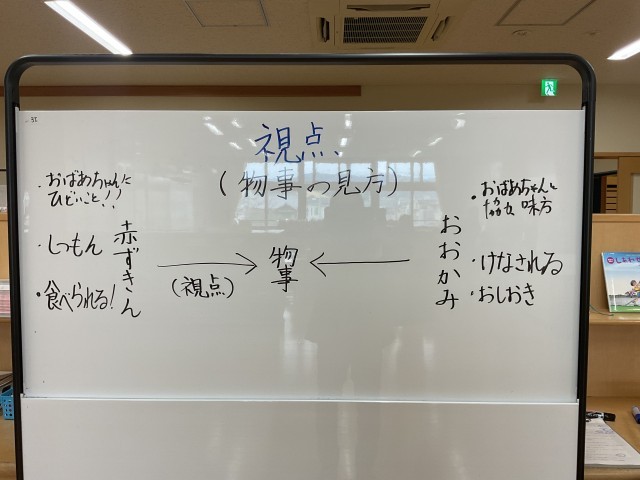 視点
(物事の見方)
・おばあちゃんに
ひどいこと!!
・しつもん
・食べられる!
赤ずきん
(視点)
物事
おおかみ
・おばあちゃんと
協力 味方
・けなされる
・おしおき